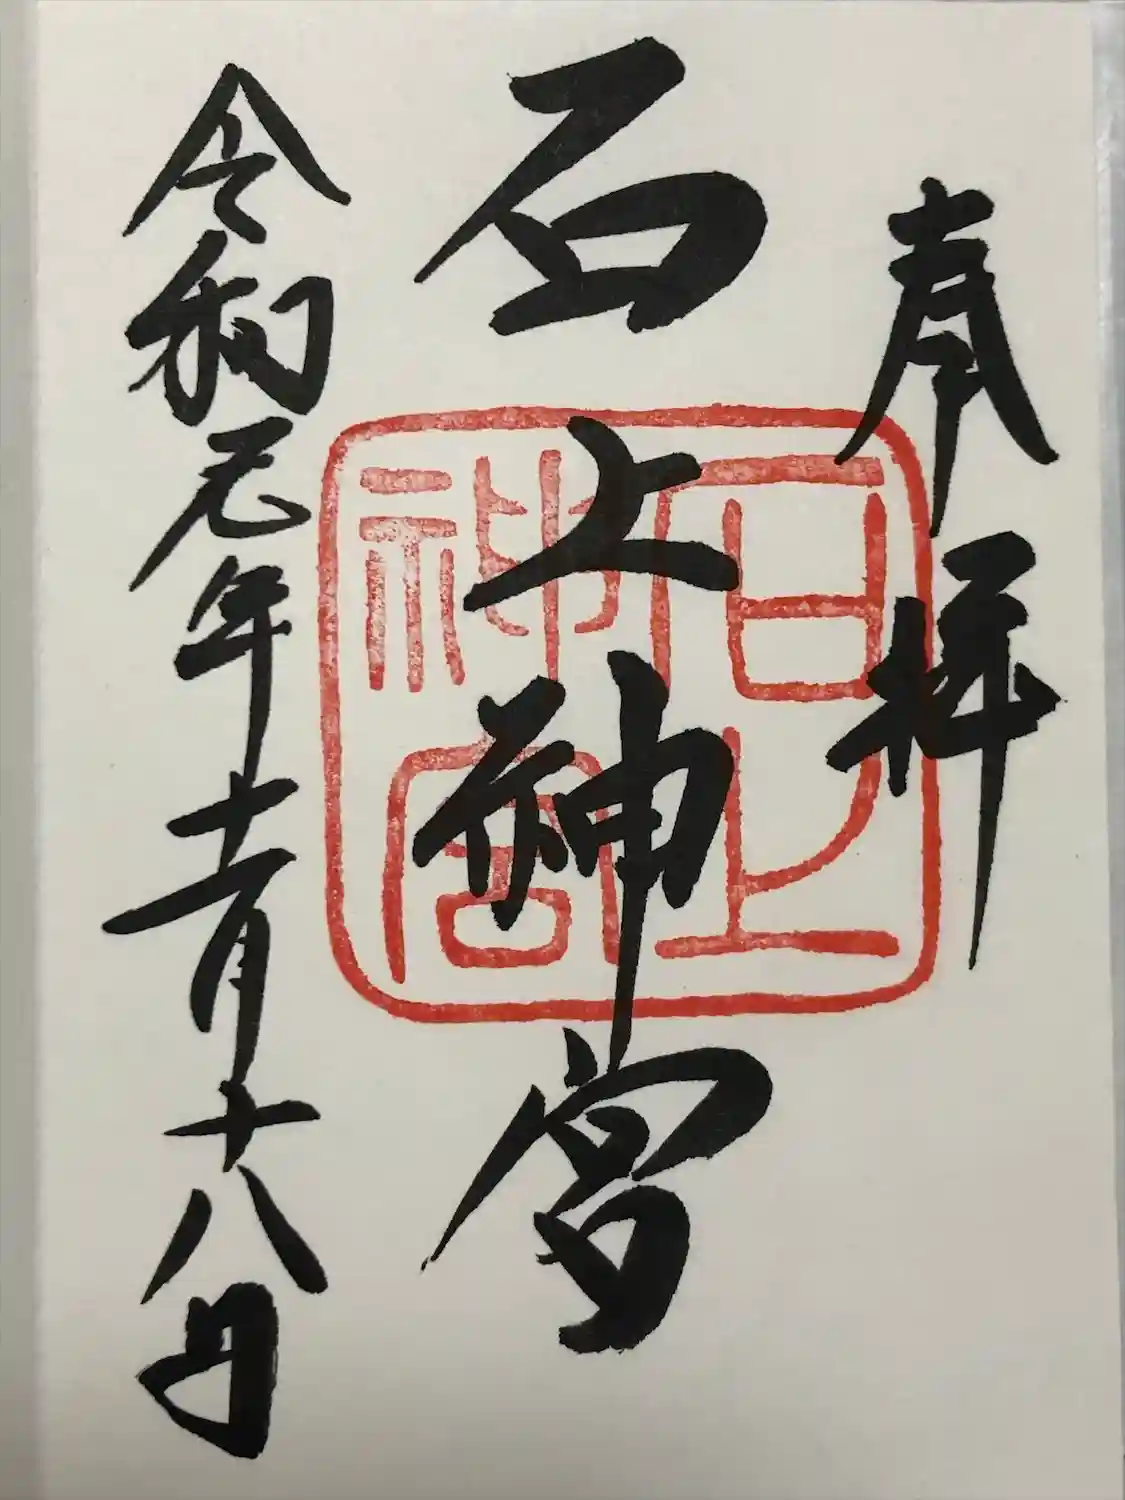 奉拝
石上神宮
令和元年十一月十八日
石上
神宮